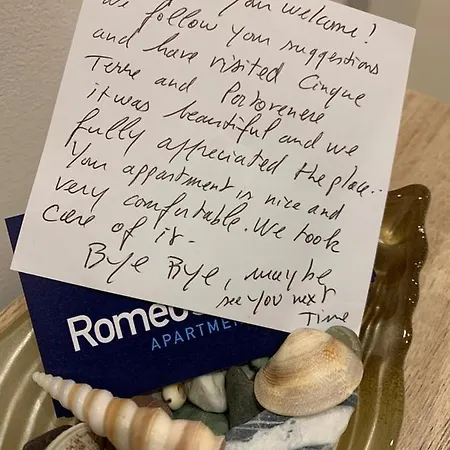 your welcome!
We follow your suggestions
and have visited Cinque
Terre and Portovenere
it was beautiful and we
fully appreciated the place..
Your appartment is nice and
very comfortable. We took
care of it.
Bye Bye, maybe
see you next
Time
Romeo
APARTMEN